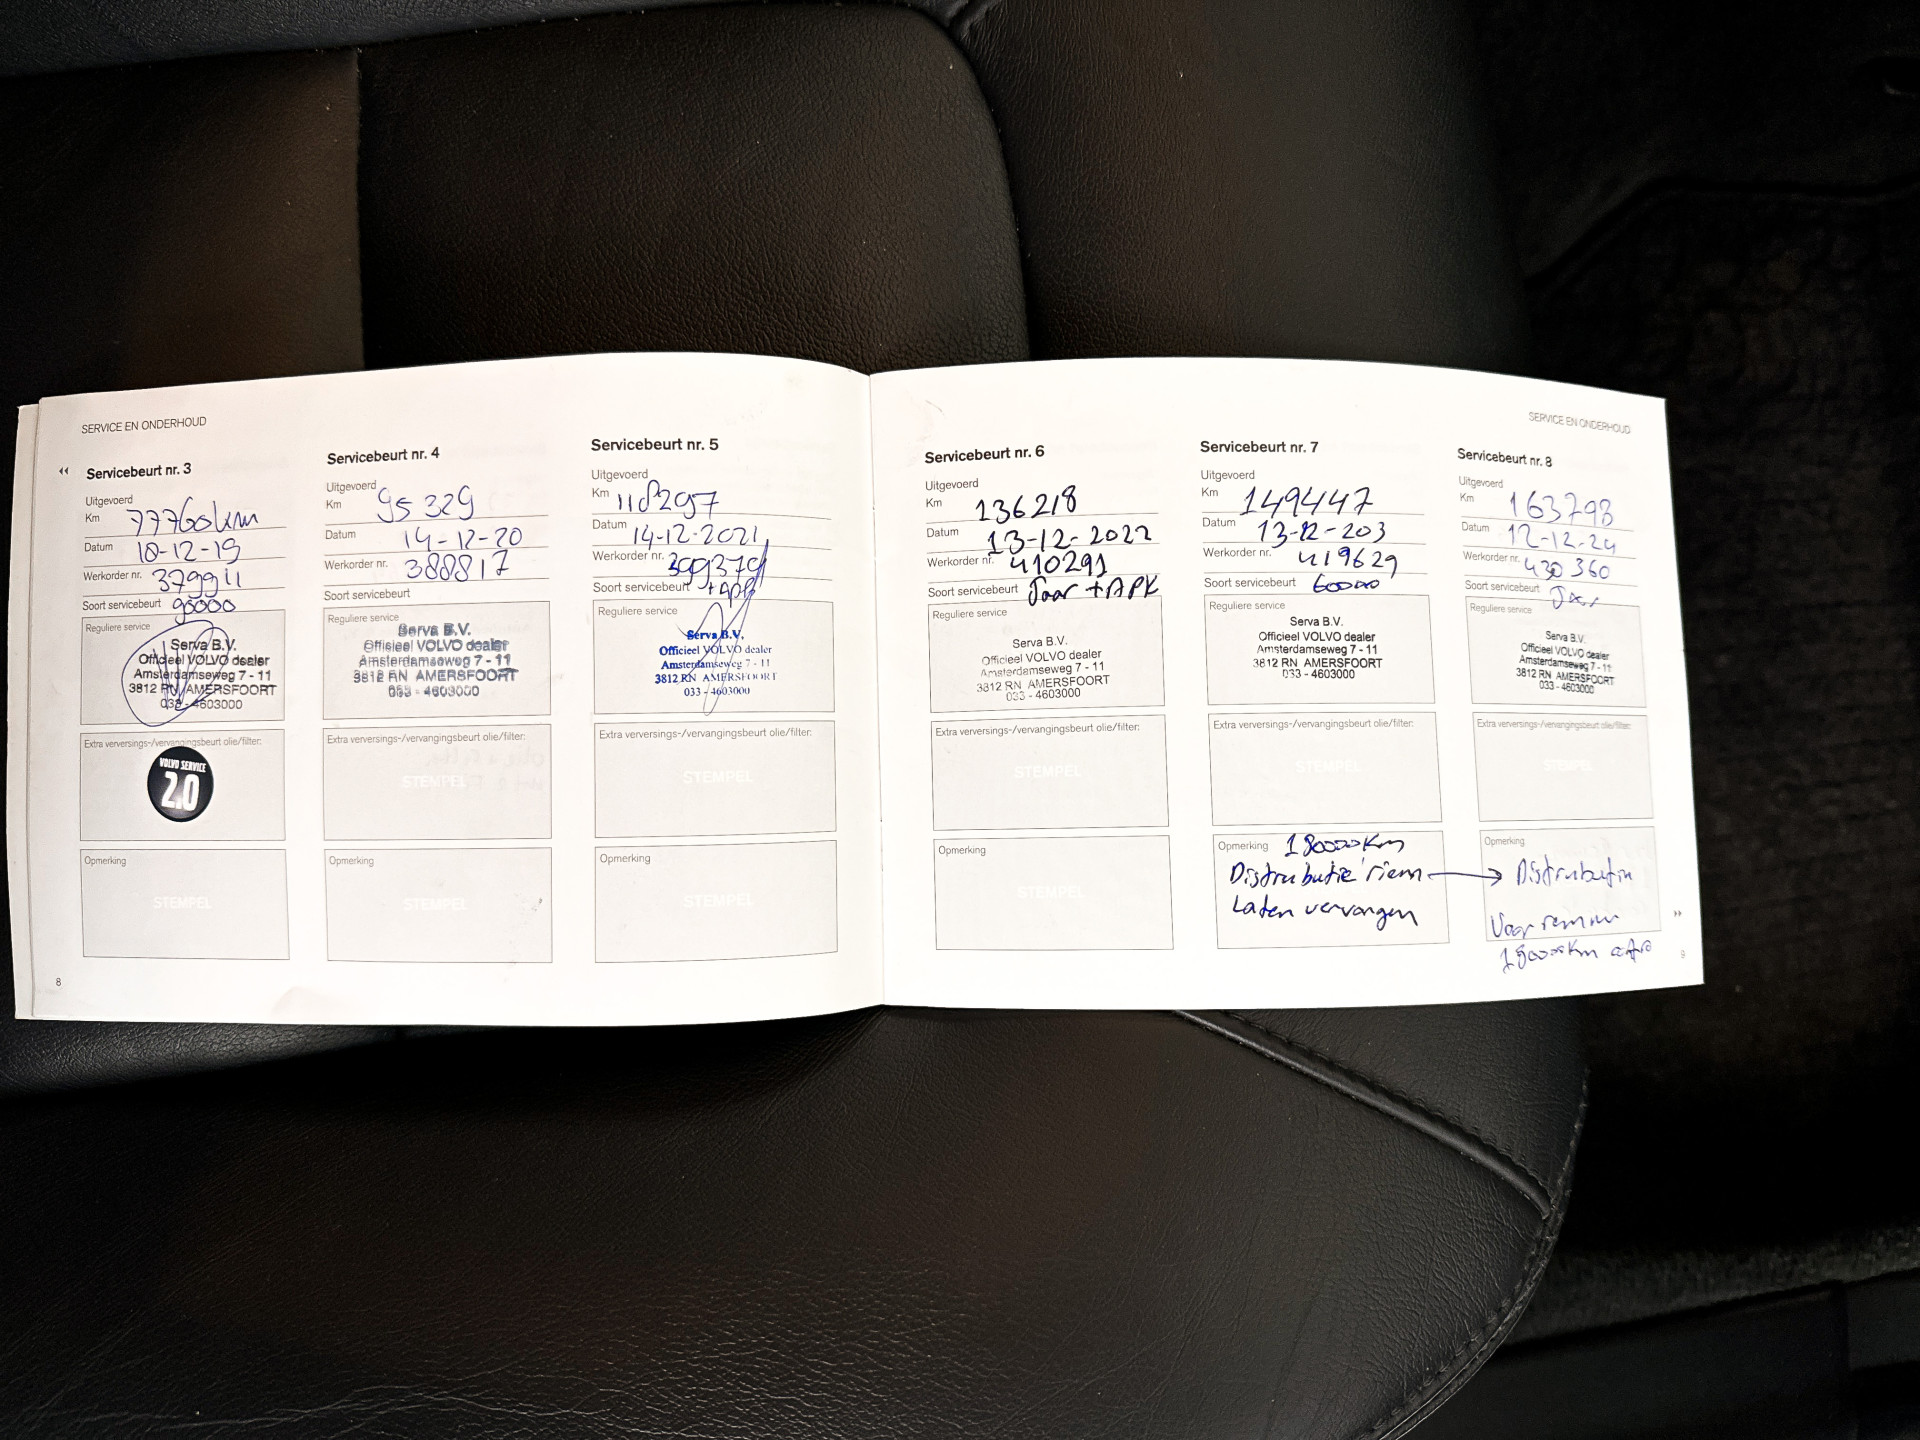 SERVICE EN ONDERHOUD
Servicebeurt nr. 3
Uitgevoerd
Km 77760km
Datum 10-12-19
Werkorder nr. 379911
Soort servicebeurt 90000
Reguliere service
Serva B.V.
Officieel VOLVO dealer
Amsterdamseweg 7 - 11
3812 RN AMERSFOORT
033 - 4603000
Extra verversings-/vervangingsbeurt olie/filter:
VOLVO SERVICE
2.0
Opmerking
STEMPEL
8
Servicebeurt nr. 4
Uitgevoerd
Km 95329
Datum 14-12-20
Werkorder nr. 388817
Soort servicebeurt
Reguliere service
Serva B.V.
Officieel VOLVO dealer
Amsterdamseweg 7 - 11
3812 RN AMERSFOORT
033 - 4603000
Extra verversings-/vervangingsbeurt olie/filter:
STEMPEL
Opmerking
STEMPEL
Servicebeurt nr. 5
Uitgevoerd
Km 118297
Datum 14-12-2021
Werkorder nr. 399379
Soort servicebeurt +APK
Reguliere service
Serva B.V.
Officieel VOLVO dealer
Amsterdamseweg 7 - 11
3812 RN AMERSFOORT
033 - 4603000
Extra verversings-/vervangingsbeurt olie/filter:
STEMPEL
Opmerking
STEMPEL
SERVICE EN ONDERHOUD
Servicebeurt nr. 6
Uitgevoerd
Km 136218
Datum 13-12-2022
Werkorder nr. 410291
Soort servicebeurt Jaar +APK
Reguliere service
Serva B.V.
Officieel VOLVO dealer
Amsterdamseweg 7 - 11
3812 RN AMERSFOORT
033 - 4603000
Extra verversings-/vervangingsbeurt olie/filter:
STEMPEL
Opmerking
STEMPEL
Servicebeurt nr. 7
Uitgevoerd
Km 149447
Datum 13-12-203
Werkorder nr. 419629
Soort servicebeurt 60000
Reguliere service
Serva B.V.
Officieel VOLVO dealer
Amsterdamseweg 7 - 11
3812 RN AMERSFOORT
033 - 4603000
Extra verversings-/vervangingsbeurt olie/filter:
STEMPEL
Opmerking 180000Km
Distributie riem →
Laten vervangen
Servicebeurt nr. 8
Uitgevoerd
Km 163798
Datum 12-12-24
Werkorder nr. 430360
Soort servicebeurt Jaar
Reguliere service
Serva B.V.
Officieel VOLVO dealer
Amsterdamseweg 7 - 11
3812 RN AMERSFOORT
033 - 4603000
Extra verversings-/vervangingsbeurt olie/filter:
STEMPEL
Opmerking
Distributie
Voor remmen
180000Km
9